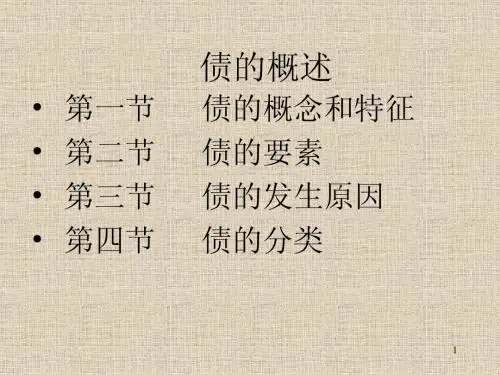 债的概述
• 第一节 债的概念和特征
• 第二节 债的要素
• 第三节 债的发生原因
• 第四节 债的分类
1